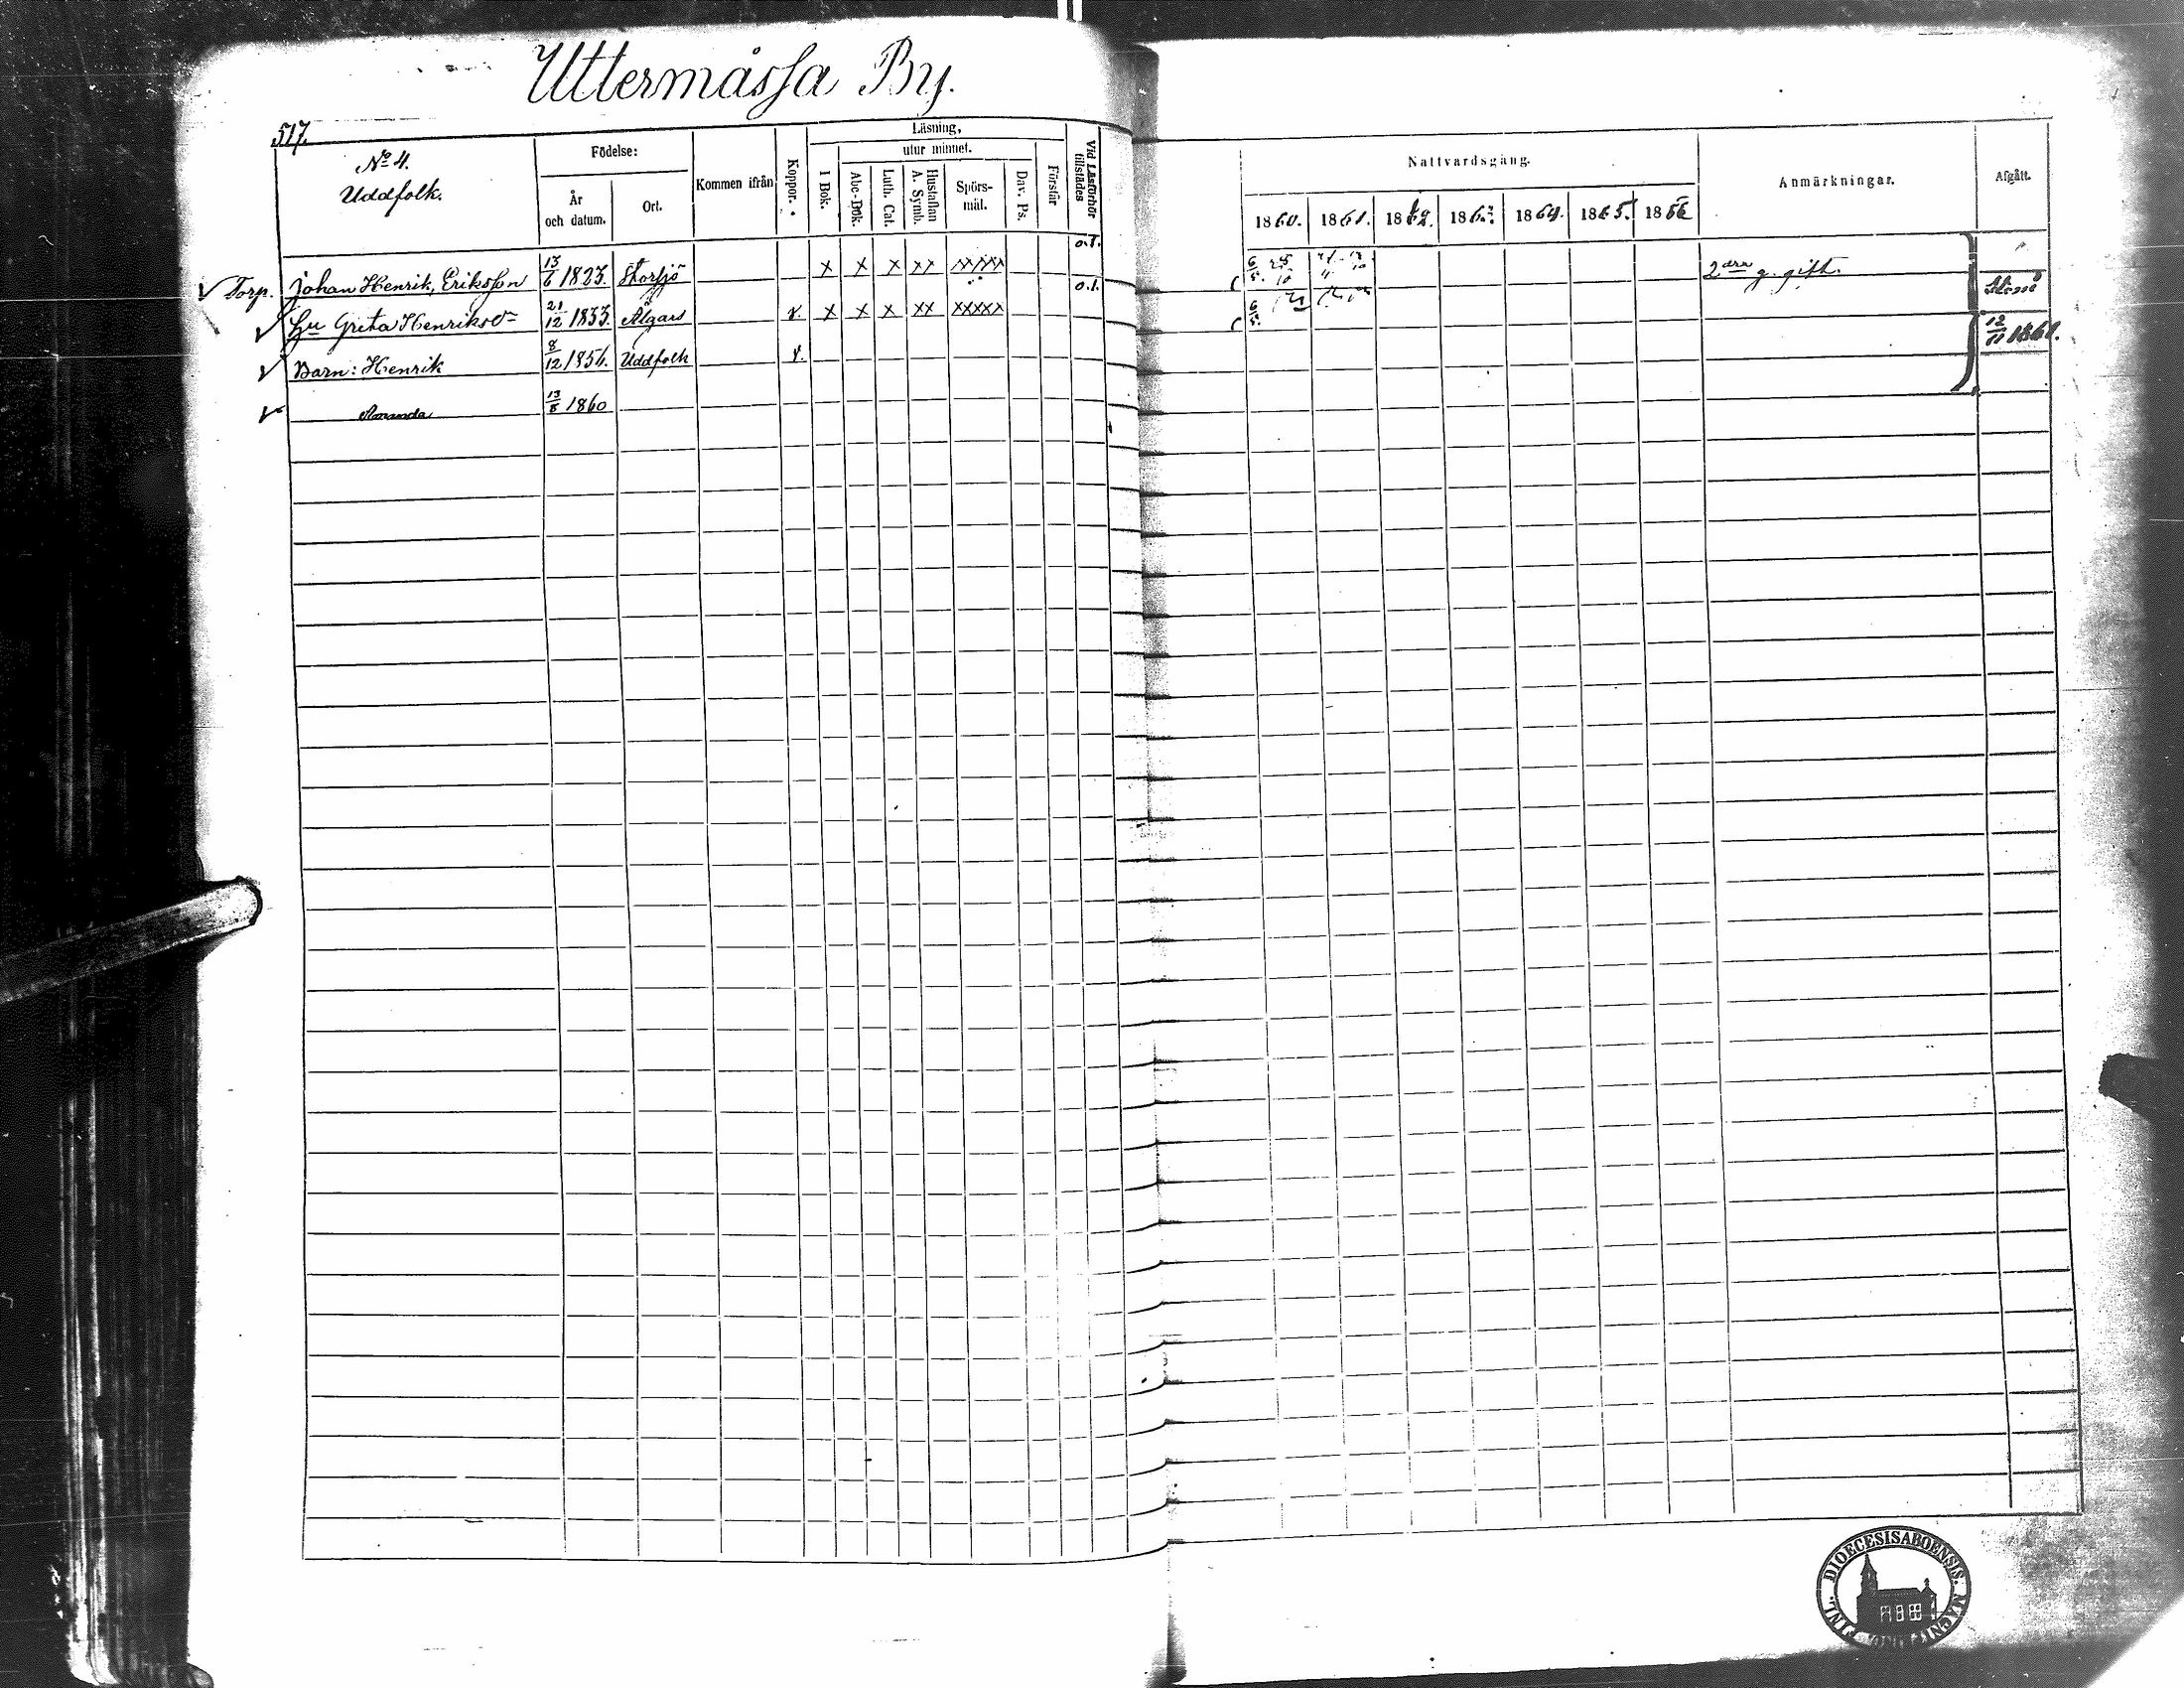 Uttermåssa By.
517.
No 4.
Uddfolk.
Födelse:
År
och datum.
Ort.
Kommen ifrån
Koppor.
Läsning,
utur minnet.
I Bok.
Abc-Bok.
Luth. Cat.
Hustaflan
A. Symb.
Spörs-
mål.
Dav. Ps.
Förstår
Vid Läsförhör
tillstädes
Nattvardsgång.
1860. 1861. 1862. 1863. 1864. 1865. 1866
Anmärkningar.
Afgått.
o.l.
Torp. Johan Henrik, Eriksson 13/6 1823. Storsjö x x x xx xxxxx 6/5. 25/10 2dra g. gift.
o.l.
Hu Greta Henriksd 21/12 1833. Ålgars v. x x x xx xxxxx 6/5.
12/11 1861.
Barn: Henrik 8/12 1854. Uddfolk v.
Amanda 13/8 1860
DIOECESIS ABOENSIS. MAGNI DUC. FINL.